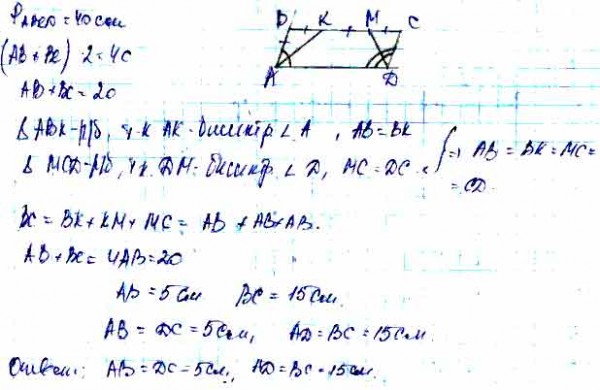 P ABCD = 40 см
B K M C
A D
(AB + BC) · 2 = 40
AB + BC = 20
Δ ABK - р/б, т.к AK - биссектр ∠ A , AB = BK
Δ MCD - р/б, т.к. DM - биссектр. ∠ D, MC = DC
⇒ AB = BK = MC =
= CD.
BC = BK + KM + MC = AB + AB + AB.
AB + BC = 4AB = 20
AB = 5 см BC = 15 см.
AB = DC = 5 см, AD = BC = 15 см.
Ответ: AB = DC = 5 см, AD = BC = 15 см.